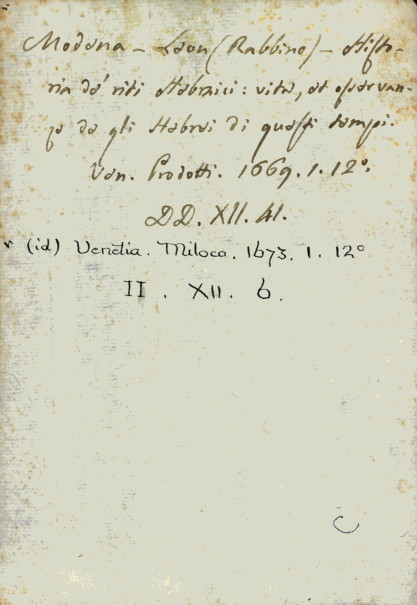 Modena - Leon (Rabbino) - Histo-
ria de' riti Hebraici: vita, et osservan-
ze de gli Hebrei di questi tempi.
Ven. Prodotti. 1669. 1. 12º.
DD. XII. 41.
(id) Venetia. Miloco. 1673. 1. 12º
II. XII. 6.
C